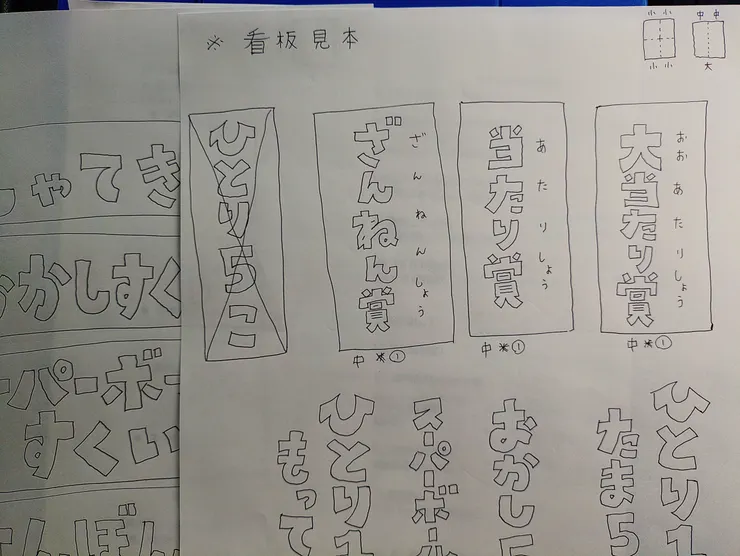 ※ 看板見本
小 小
小 小
中 中
大
大当たり賞
おお あ た り しょう
中※①
当たり賞
あ た り しょう
中※①
ざんねん賞
ざ ん ね ん しょう
中※①
ひとり5こ
ひとり1
たま5
おかし5
スーパーボール
ひとり1
もって
しゃてき
おかしすく
ーパーボー
すくい
んぼん